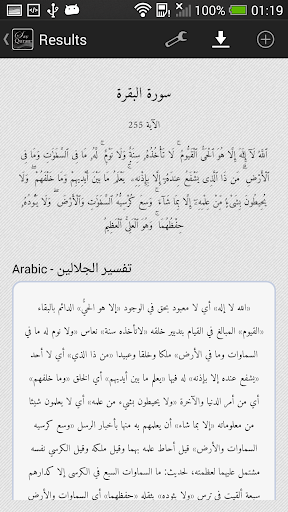 100% 01:19
Results
سورة البقرة
الآية 255
ٱللَّهُ لَآ إِلَٰهَ إِلَّا هُوَ ٱلْحَىُّ ٱلْقَيُّومُ ۚ لَا تَأْخُذُهُۥ سِنَةٌ وَلَا نَوْمٌ ۚ لَّهُۥ مَا فِى ٱلسَّمَٰوَٰتِ وَمَا فِى
ٱلْأَرْضِ ۗ مَن ذَا ٱلَّذِى يَشْفَعُ عِندَهُۥٓ إِلَّا بِإِذْنِهِۦ ۚ يَعْلَمُ مَا بَيْنَ أَيْدِيهِمْ وَمَا خَلْفَهُمْ ۖ وَلَا
يُحِيطُونَ بِشَىْءٍ مِّنْ عِلْمِهِۦٓ إِلَّا بِمَا شَآءَ ۚ وَسِعَ كُرْسِيُّهُ ٱلسَّمَٰوَٰتِ وَٱلْأَرْضَ ۖ وَلَا يَـُٔودُهُۥ
حِفْظُهُمَا ۚ وَهُوَ ٱلْعَلِىُّ ٱلْعَظِيمُ
Arabic - تفسير الجلالين
«الله لا إله» أي لا معبود بحق في الوجود «إلا هو الحيُّ» الدائم بالبقاء
«القيوم» المبالغ في القيام بتدبير خلقه «لا تأخذه سنة» نعاس «ولا نوم له ما في
السماوات وما في الأرض» ملكا وخلقا وعبيدا «من ذا الذي» أي لا أحد
«يشفع عنده إلا بإذنه» له فيها «يعلم ما بين أيديهم» أي الخلق «وما خلفهم»
أي من أمر الدنيا والآخرة «ولا يحيطون بشيء من علمه» أي لا يعلمون شيئا
من معلوماته «إلا بما شاء» أن يعلمهم به منها بأخبار الرسل «وسع كرسيه
السماوات والأرض» قيل أحاط علمه بهما وقيل ملكه وقيل الكرسي نفسه
مشتمل عليهما لعظمته، لحديث: ما السماوات السبع في الكرسي إلا كدارهم
سبعة ألقيت في ترس «ولا يئوده» يثقله «حفظهما» أي السماوات والأرض